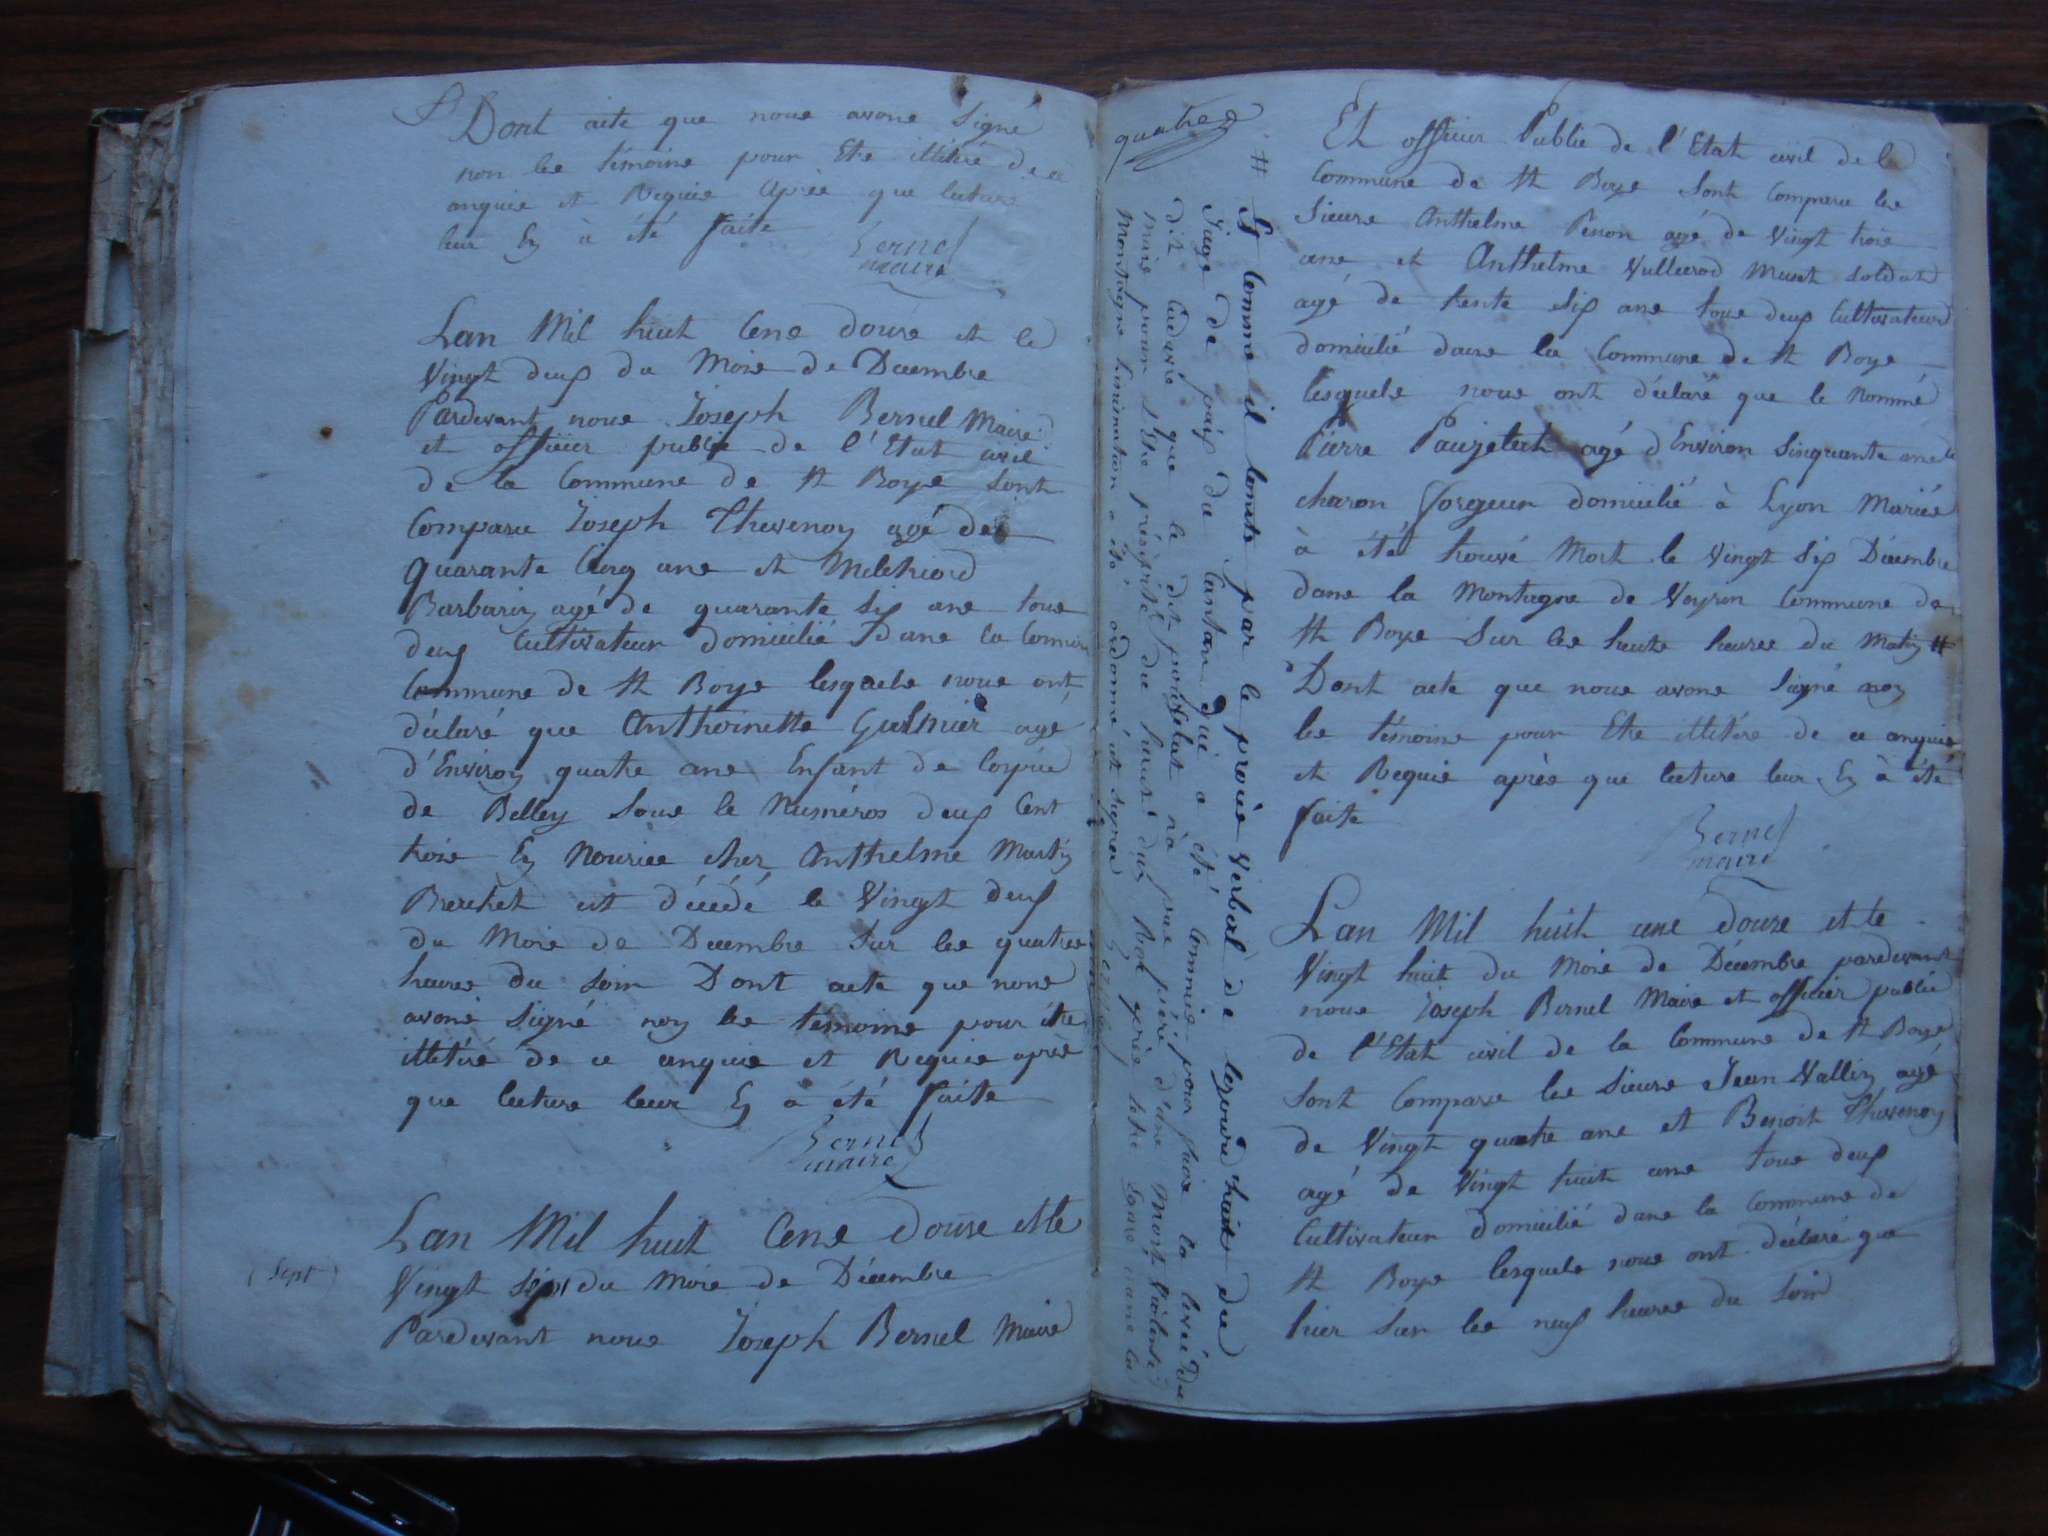 Dont acte que nous avons Signé
non les témoins pour Etre illitéré de ce
anquis et Requis Après que lecture
leur En à été faite
Bernel
maire
Lan Mil huit Cens douze et le
Vingt deux du Mois de Décembre
Pardevant nous Joseph Bernel Maire
et officier public de l'Etat civil
de la Commune de St Boys sont
Comparu Joseph Thevenon agé de
quarante Cinq ans et Melchiord
Barbarin agé de quarante Six ans tous
deux Cultivateur domicilié Dans la Commun
Commune de St Boys lesquels nous ont
déclaré que Anthoinette Gulnier agé
d'Environ quatre ans Enfant de l'ospice
de Belley Sous le Numéros deux Cent
trois En Nourice cher Anthelme Martin
Berchet est décédé le Vingt deux
du Mois de Décembre Sur les quatre
heures du Soir Dont acte que nous
avons Signé non les témoins pour être
illitéré de ce anquis et Requis après
que lecture leur En a été faite
Bernel
maire
Lan Mil huit Cens douze et le
(Sept) Vingt Sept du Mois de Décembre
Pardevant nous Joseph Bernel Maire
quatre
Et officier Public de l'Etat civil de la
Commune de St Boys Sont Comparu les
Sieurs Anthelme Peron agé de Vingt trois
ans et Anthelme Vullierod Muset soldat
agé de trente Six ans tous deux Cultivateurs
domicilié dans la Commune de St Boys
lesquels nous ont déclaré que le Nommé
Pierre Paujetat agé d'Environ Sinquante ans
charon forgeur domicilié à Lyon Mariés
à été trouvé Mort le Vingt Six Décembre
dans la Montagne de Voyron Commune de
St Boys Sur les huite heures du Matin #
Dont acte que nous avons Signé non
les témoins pour Etre illitéré de ce anquis
et Requis après que lecture leur En à été
faite
Bernel
maire
Lan Mil huit cens douze et le
Vingt huit du Mois de Décembre pardevant
nous Joseph Bernel Maire et officier public
de l'Etat civil de la Commune de St Boys
sont Comparu les Sieurs Jean Vallin agé
de Vingt quatre ans et Benoit Thevenon
agé de Vingt huit ans tous deux
Cultivateur domicilié dans la Commune de
St Boys lesquels nous ont déclaré que
hier Sur les neuf heures du Soir
# Et Comme il Conste par le procès Verbal de
Juge de paix du Canton qui a été Commis pour faire la levée du
dit Cadavre que le dit paujetat n'a pas péri d'une Mort Violente
mais pour s'Etre précipité du haut d'un Roc après
Montagne a été ordonné et signé